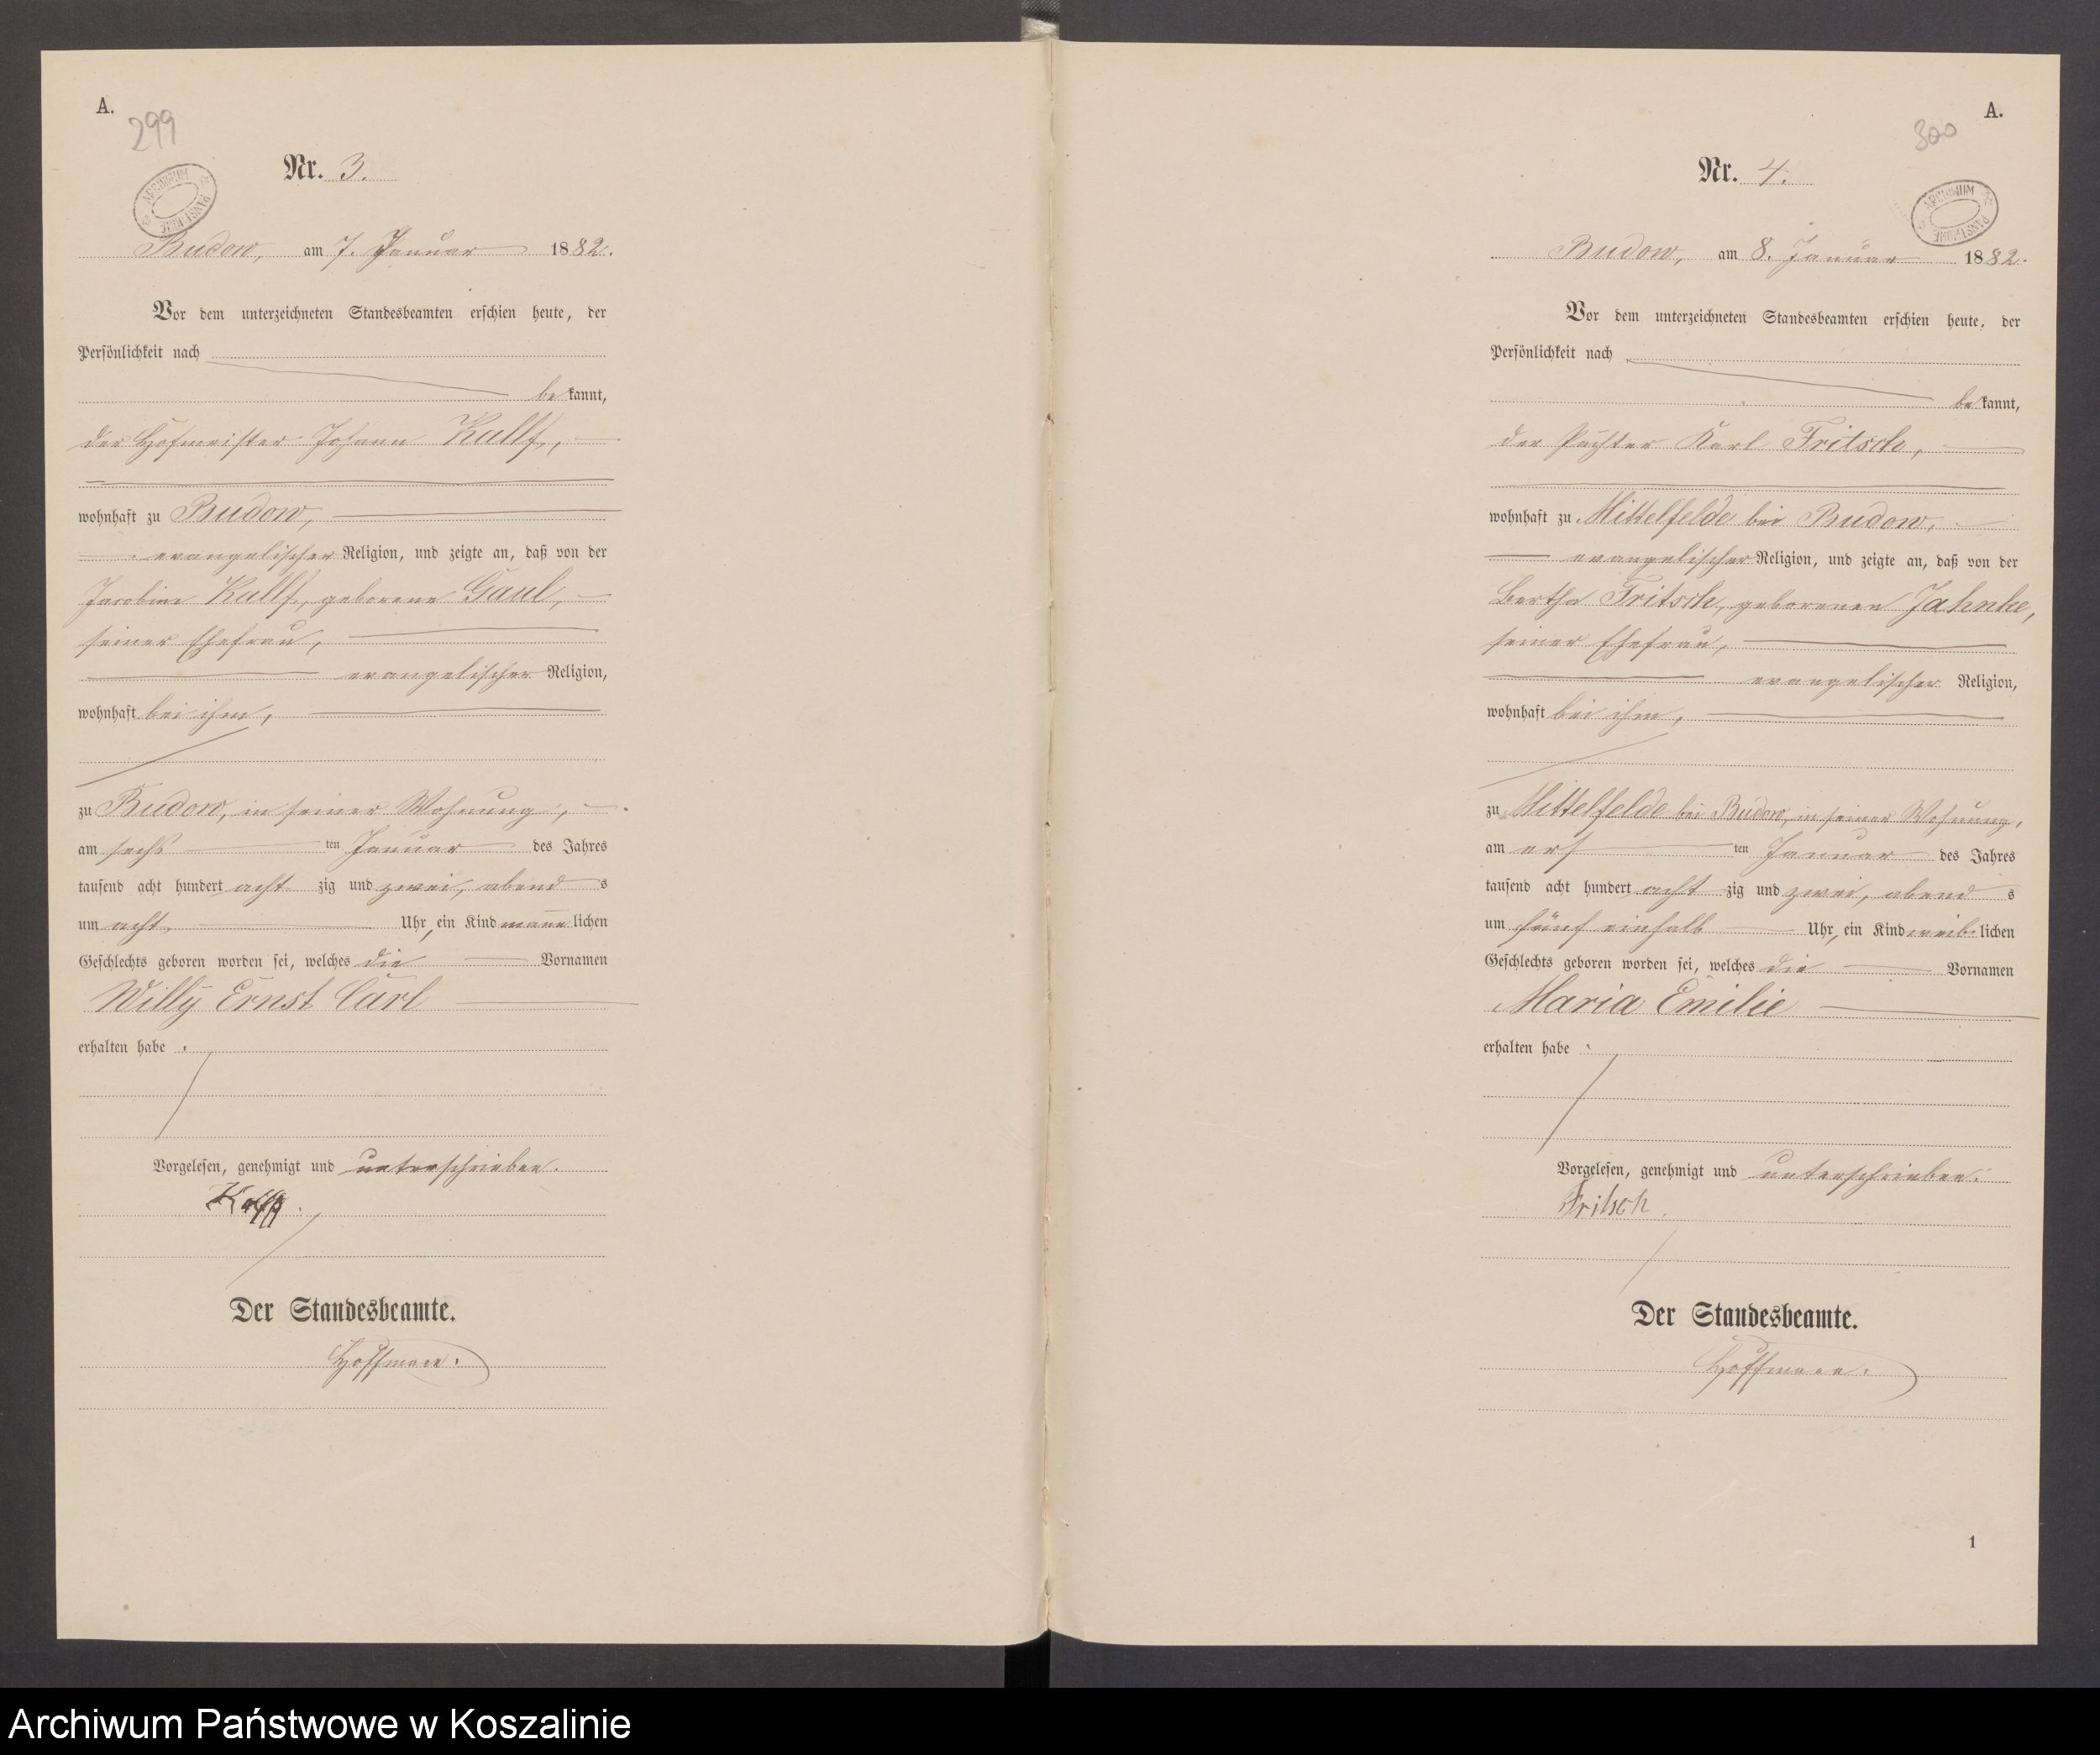 A.
299
Nr. 3.
ARCHIWUM PAŃSTWOWE
Budow, am 7. Januar 1882.
Vor dem unterzeichneten Standesbeamten erschien heute, der
Persönlichkeit nach
bekannt,
der Hofmeister Johann Kallß,
wohnhaft zu Budow,
evangelischer Religion, und zeigte an, daß von der
Jacobine Kallß, geborene Gaul,
seiner Ehefrau,
evangelischer Religion,
wohnhaft bei ihm,
zu Budow, in seiner Wohnung,
am sechsten Januar des Jahres
tausend acht hundert achtzig und zwei, abends
um acht Uhr, ein Kind männlichen
Geschlechts geboren worden sei, welches die Vornamen
Willy Ernst Carl
erhalten habe.
Vorgelesen, genehmigt und unterschrieben.
Der Standesbeamte.
Hoffmann.
A.
300
Nr. 4.
ARCHIWUM PAŃSTWOWE
Budow, am 8. Januar 1882.
Vor dem unterzeichneten Standesbeamten erschien heute, der
Persönlichkeit nach
bekannt,
der Pächter Karl Fritsch,
wohnhaft zu Mittelfelde bei Budow,
evangelischer Religion, und zeigte an, daß von der
Bertha Fritsch, geborenen Jahnke,
seiner Ehefrau,
evangelischer Religion,
wohnhaft bei ihm,
zu Mittelfelde bei Budow, in seiner Wohnung,
am ersten Januar des Jahres
tausend acht hundert achtzig und zwei, abends
um fünf einhalb Uhr, ein Kind weiblichen
Geschlechts geboren worden sei, welches die Vornamen
Maria Emilie
erhalten habe.
Vorgelesen, genehmigt und unterschrieben.
Fritsch.
Der Standesbeamte.
Hoffmann.
1
Archiwum Państwowe w Koszalinie